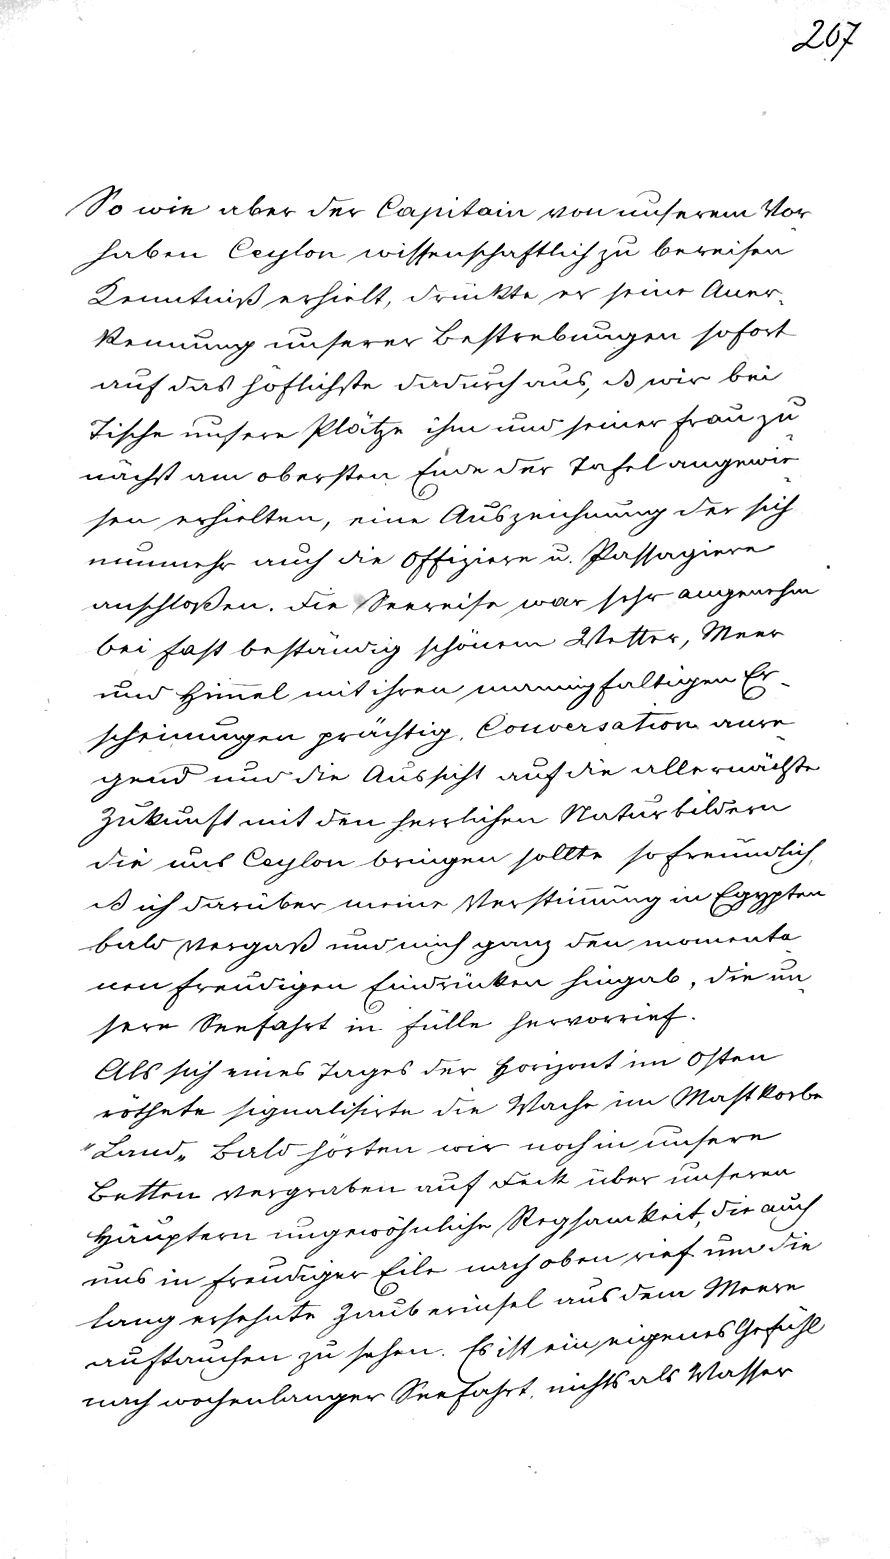 207
So wie aber der Capitain von unserem Vor
haben Ceylon wissenschaftlich zu bereisen
Kenntniß erhielt, drückte er seine Aner-
kennung unserer Bestrebungen sofort
auf das höflichste dadurch aus, ß wir bei
Tische unsere Plätze ihm und seiner Frau zu
nächst am obersten Ende der Tafel angewie
sen erhielten, eine Auszeichnung der sich
nunmehr auch die Offiziere u. Passagiere
anschloßen. Die Seereise war sehr angenehm
bei fast beständig schönem Wetter, Meer
und Him̅el mit ihren mannigfaltigen Er-
scheinungen prächtig, Conversation anre
gend und die Aussicht auf die allernächste
Zukunft mit den herrlichen Naturbildern
die uns Ceylon bringen sollte so freundlich,
ß ich darüber meine Verstim̅ung in Egypten
bald vergaß und mich ganz den momenta
nen freudigen Eindrücken hingab, die un
sere Seefahrt in Fülle hervorrief.
Als sich eines Tages der Horizont im Osten
röthete signalisirte die Wache im Mastkorbe
"Land„ Bald hörten wir noch in unsere
Betten vergraben auf Deck über unseren
Häuptern ungewöhnliche Regsamkeit, die auch
uns in freudiger Eile nach oben rief um die
lang ersehnte Zauberinsel aus dem Meere
auftauchen zu sehen. Es ist ein eigenes Gefühl
nach wochenlanger Seefahrt, nichts als Wasser